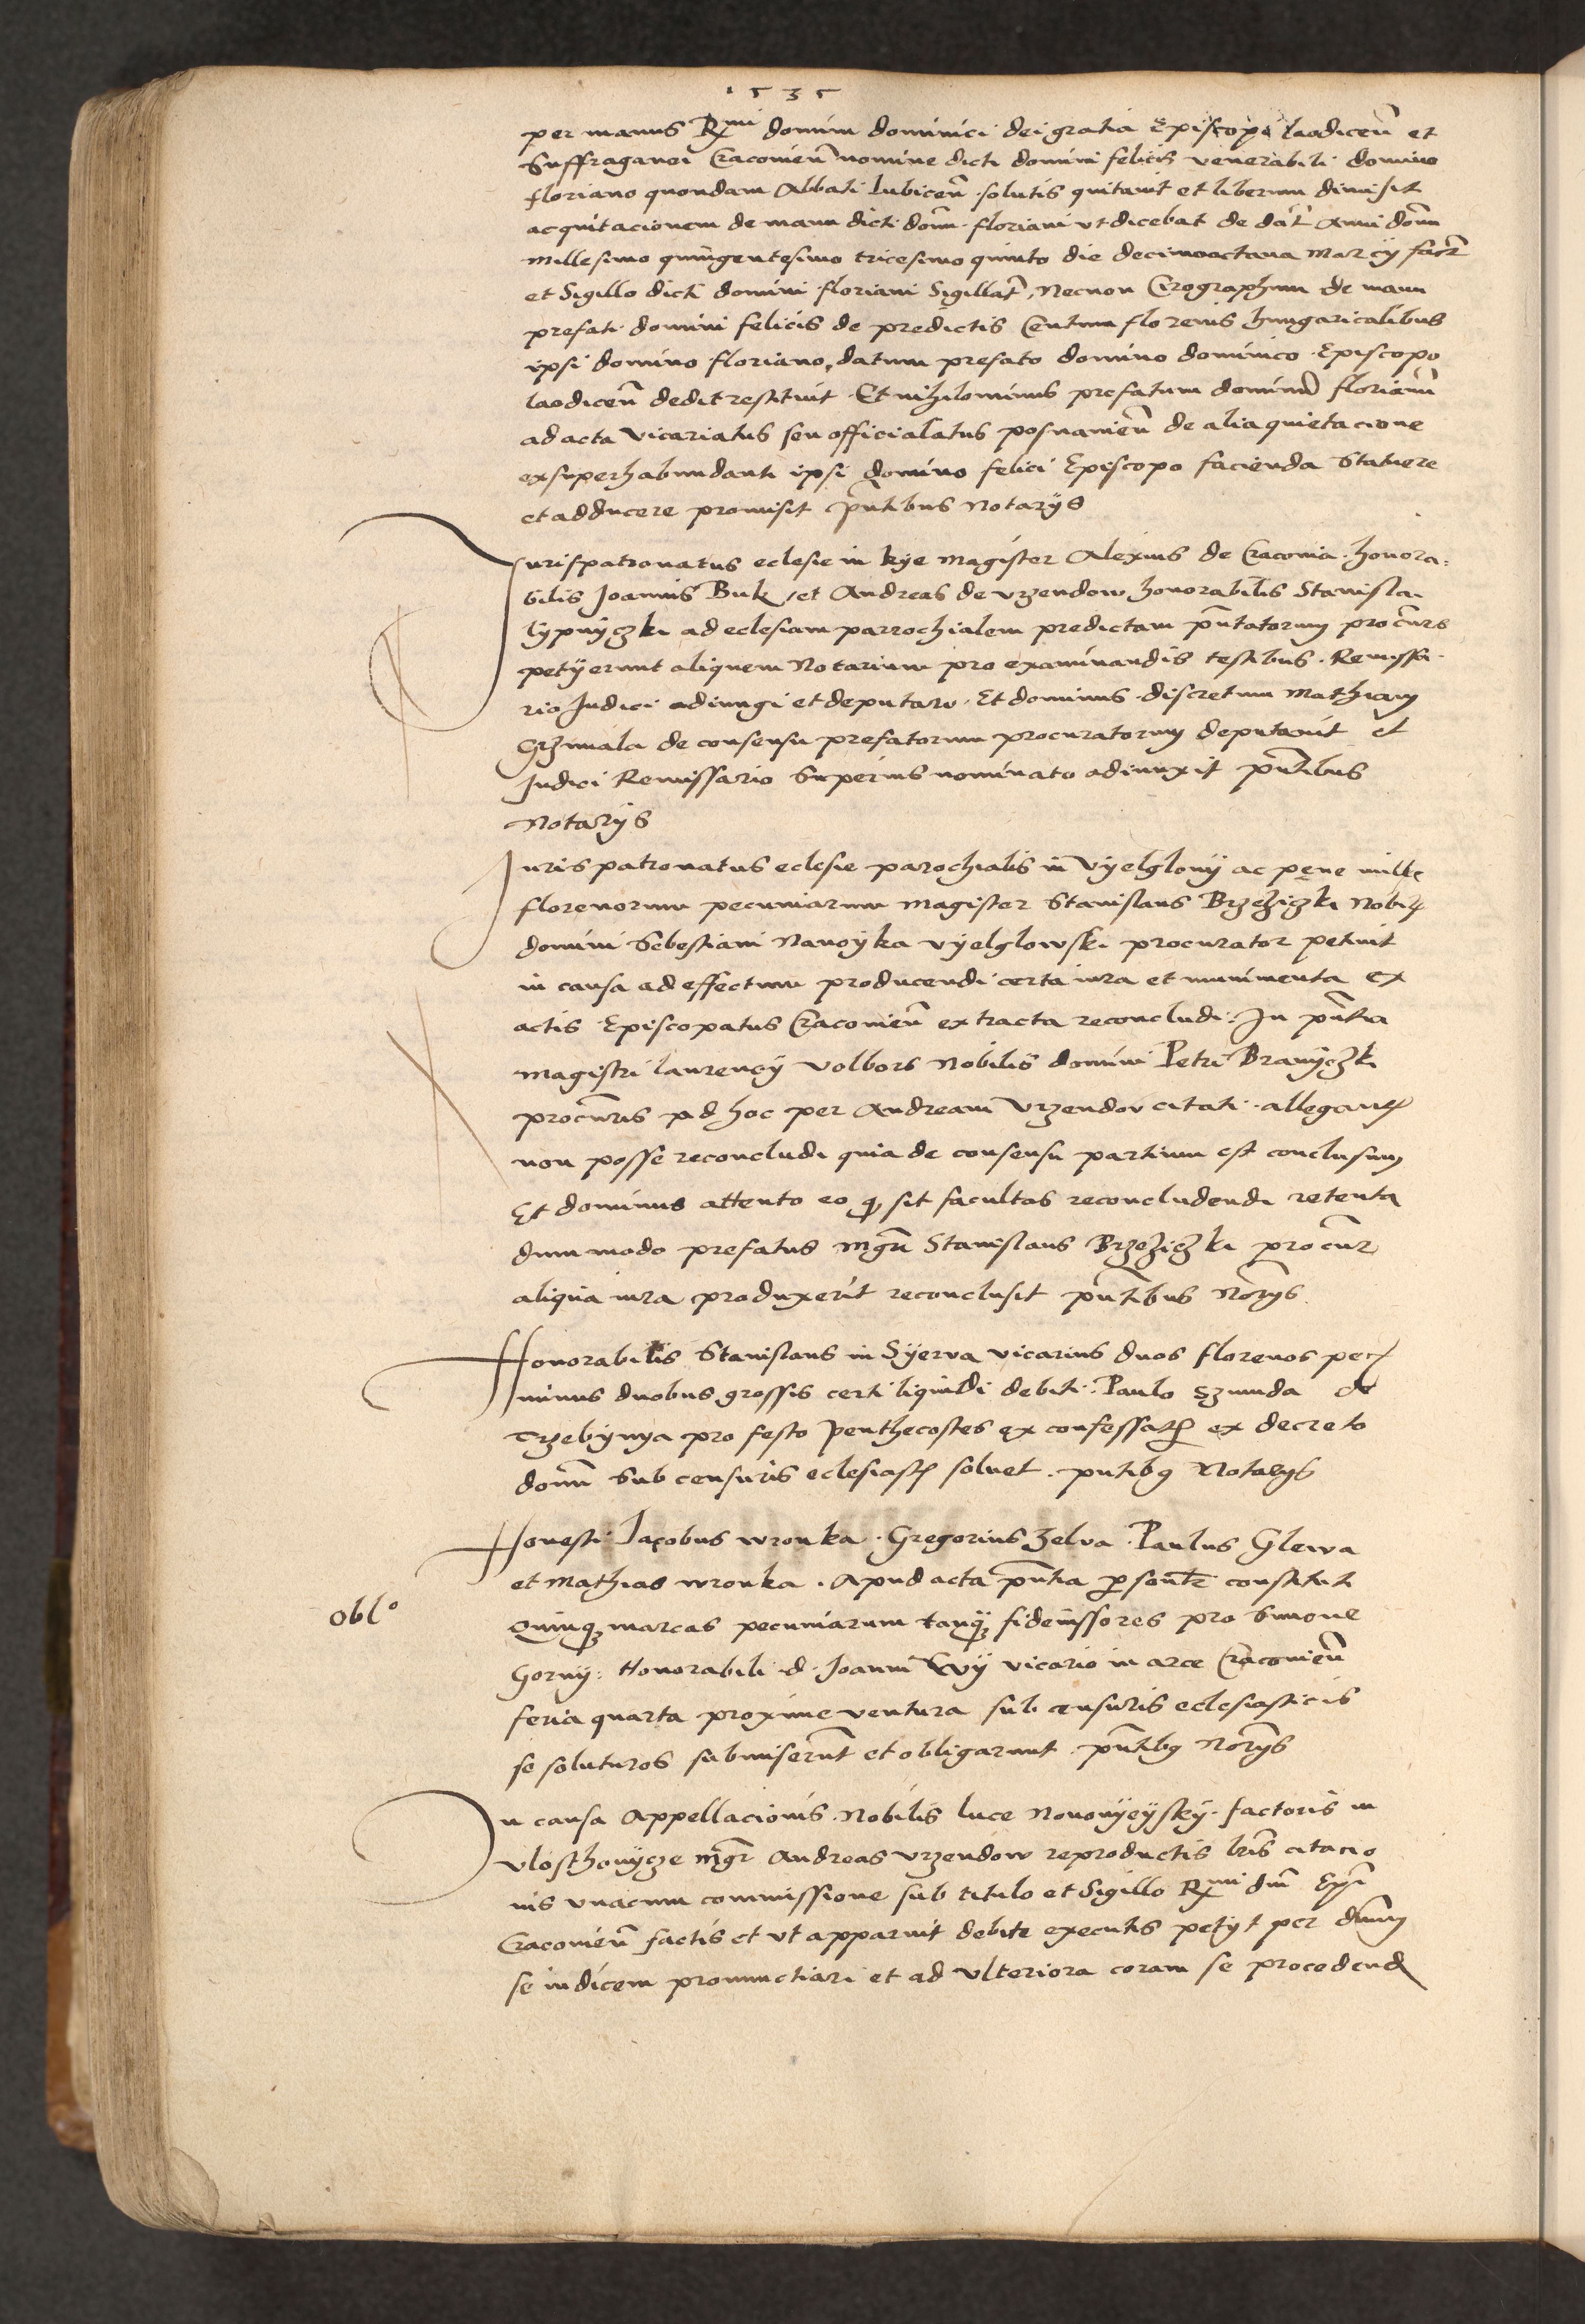 1535
per manus Rmi domini dominici dei gratia Episcopi laodiceñ et
Suffraganei Cracovieñ nomine dicti domini felicis venerabili domino
floriano quondam Abbati lubiceñ solutis quitavit et liberum dimisit
ac quitacionem de manu dicti domi floriani ut dicebat de dat Anni domi
Millesimo quingentesimo tricesimo quinto die decimaoctava Marcÿ fact
et Sigillo dicti domini floriani Sigillat, Necnon Cirographum de manu
prefati domini felicis de predictis Centum florenis hungaricalibus
ipsi domino floriano, datum prefato domino dominico Episcopo
laodiceñ dedit restituit Et nihilominus prefatum dominum florianum
ad acta Vicariatus seu officialatus posnanieñ de alia quietacione
ex superhabundanti ipsi domino felici Episcopo facienda Statuere
et adducere promisit pñtibus Notarÿs
Jurispatronatus eclesie in kÿe Magister Alexius de Cracovia honora-
bilis Joannis Buk, et Andreas de Urzendow honorabilis Stanislai
lÿpnÿczki ad eclesiam parrochialem predictam pñtatorum procurs
petÿerunt aliquem Notarium pro examinandis testibus Remissa-
rio Judici adiungi et deputari Et dominus discretum Mathiam
Grzimala de consensu prefatorum procuratorum deputavit et
Judici Remissario Superius nominato adiunxit pñtibus
Notarÿs
Juris patronatus eclesie parochialis in Vÿelglowÿ ac pene mille
florenorum pecuniarum Magister Stanislaus Brzeziczki Nobil
domini Sebestiani Nawoÿka vÿelglowski procurator petivit
in causa ad effectum producendi certa iura et munimenta ex
actis Episcopatus Cracovieñ extracta reconcludi In pñtia
Magistri laurencÿ Volbors Nobilis domini Petri Branÿczki
procuris ad hoc per Andream Urzendov citati allegant
non posse reconcludi quia de consensu partium est conclusum
Et dominus attento eo q sit facultas reconcludendi retenta
dummodo prefatus Mgr Stanislaus Brzeziczki procur
aliqua iura produxerit reconclusit pñtibus Norÿs
Honorabilis Stanislaus in Sÿerva vicarius duos florenos pec
minus duobus grossis certi liquidi debiti Paulo Szmuda de
Trzebÿnya pro festo penthecostes ex confessat ex decreto
domi Sub censuris eclesiast solvet pntibq Notarÿs
Honesti Jacobus wronka Gregorius Zelva Paulus Glewa
et Mathias wronka Apud acta pñtia psont constituti
Oblo
Quinqz marcas pecuniarum tanqz fideiussores pro Simone
Gornÿ Honorabili d Joanni Wÿ vicario in arce Cracovieñ
feria quarta proxime ventura sub censuris eclesiasticis
se soluturos submiserunt et obligarunt pñtibq Norÿs
In causa Appellacionis Nobilis luce Novovÿeÿskÿ factoris in
vlosthovÿcze Mgr Andreas Urzendow reproductis lris citacio
nis unacum commissione sub titulo et Sigillo Rmi dni Epi
Cracovieñ factis et ut apparuit debite executis petÿt per dnum
se iudicem pronunctiari et ad ulteriora coram se procedend